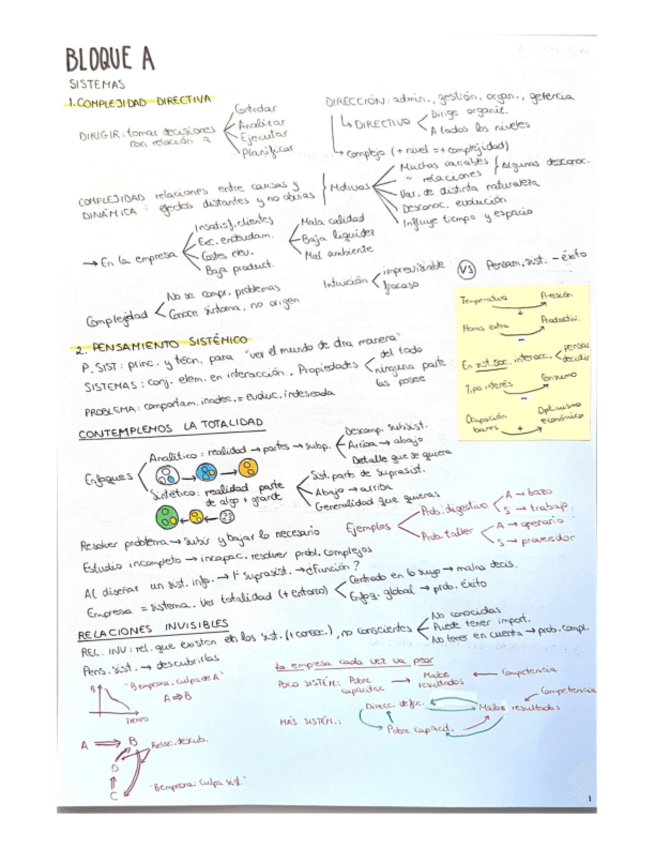 BLOQUE A
SISTEMAS
1. COMPLEJIDAD DIRECTIVA
DIRIGIR: tomar decisiones con relación a
Controlar
Analizar
Ejecutar
Planificar
DIRECCIÓN: admin., gestión, organ., gerencia
DIRECTIVO
Dirige organiz.
A todos los niveles
Complejo (+ nivel = + complejidad)
COMPLEJIDAD DINÁMICA: relaciones entre causas y efectos distantes y no obvias
Motivos
Muchas variables
" relaciones
Algunas desconoc.
Var. de distinta naturaleza
Desconoc. evolución
Influye tiempo y espacio
→ En la empresa
Insatisf. clientes
Exc. endeudam.
Costes elev.
Baja product.
Mala calidad
Baja liquidez
Mal ambiente
Complejidad
No se compr. problemas
Conoce síntoma, no origen
Intuición
imprevisible
fracaso
VS
Pensam. sist. - éxito
2. PENSAMIENTO SISTÉMICO
P. SIST: princ. y técn. para "ver el mundo de otra manera"
SISTEMAS: conj. elem. en interacción. Propiedades
del todo
ninguna parte las posee
PROBLEMA: comportam. inadec. = evoluc. indeseada
Temperatura
Presión
+
Horas extra
Productiv.
-
En sist. soc. interacc.
pensar
decidir
Tipo interés
Consumo
-
Ocupación bares
+
Optimismo económico
CONTEMPLEMOS LA TOTALIDAD
Enfoques
Analítico: realidad → partes → subp.
Descomp. subsist.
Arriba → abajo
Detalle que se quiera
Sintético: realidad parte de algo + grande
Sist. parte de suprasist.
Abajo → arriba
Generalidad que quieras
Resolver problema → subir y bajar lo necesario
Ejemplos
Prob. digestivo
A → bazo
S → trabajo
Prob. taller
A → operario
S → proveedor
Estudio incompleto → incapac. resolver probl. complejos
Al diseñar un sist. info. → 1º suprasist. → ¿Función?
Empresa = sistema. Ver totalidad (+ entorno)
Centrado en lo suyo → malas decis.
Enfoq. global → prob. éxito
RELACIONES INVISIBLES
REL. INV: rel. que existen en los sist. (+ conoc.), no conscientes
No conocidas
Puede tener import.
No tener en cuenta → prob. compl.
Pens. sist. → descubrirlas
B
TIEMPO
"B empeora: culpa de A"
A ⇒ B
La empresa cada vez va peor
POCO SISTÉM.: Pobre capacitac → Malos resultados ← Competencia
MÁS SISTÉM.:
Direcc. defic.
Malos resultados
Competencia
Pobre capacit.
A ⇒ B
Relac. descub.
D
C
"B empeora: culpa sist."
1